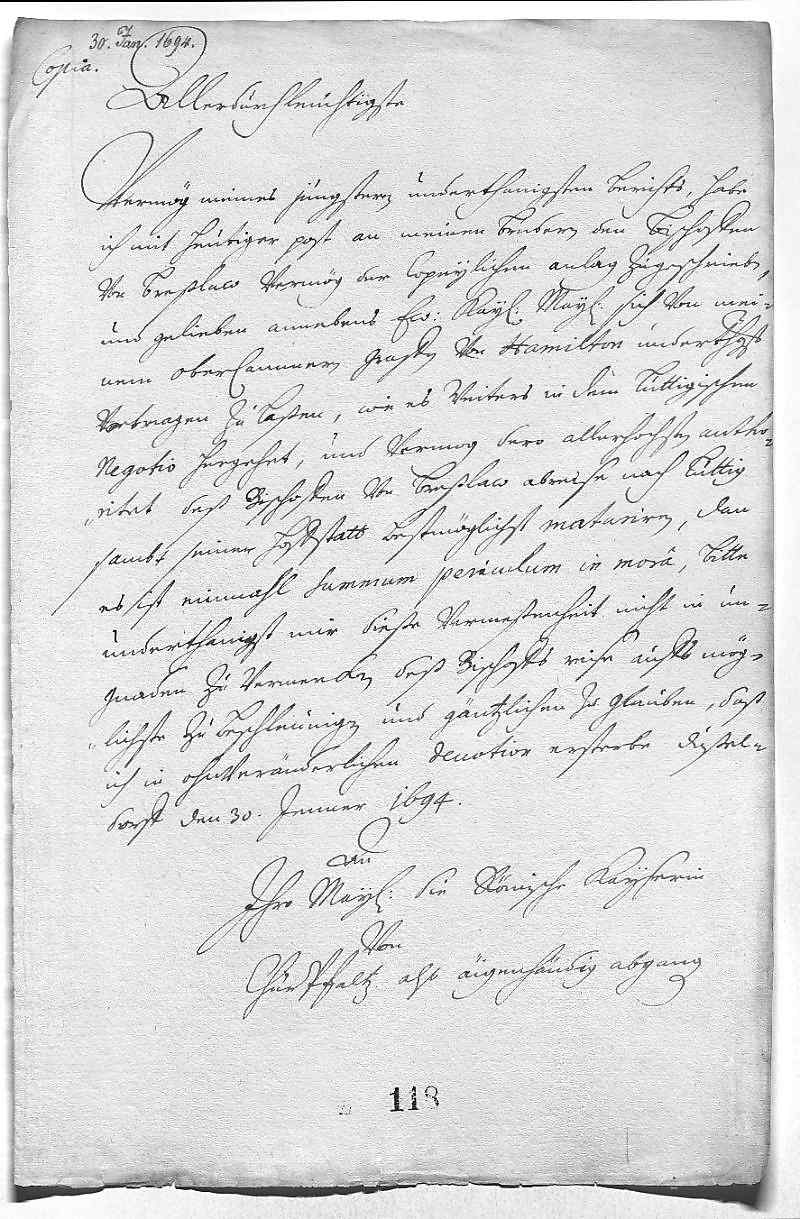 30. Jan. 1694.
Copia.
Allerdurchleuchtigste
Vermög meines jüngstern underthänigsten berichts, habe
ich mit heütiger post an meinen brudern den Bischoffen
von Breßlaw vermög der Copeylichen anlag zugeschrieben,
und gelieben annebens Ew: Kayl: Mayl: sich von mei-
nem oberCammern graffen von Hamilton underthgst
vortragen zu laßen, wie es weiters in dem Lüttigischen
Negotio hergehet, und vermög dero allerhöchste autho-
ritet deß Bischoffen von Breßlaw abreise nach Lüttig
sambt seiner hoffstatt bestmöglichst maturiren, dan
es ist einmahl summum periculum in morâ, bitte
underthänigst mir dieße vermeßenheit nicht in un-
gnaden zu vermercken deß Bischoffs reise auffs mög-
lichste zu beschleunigen und gäntzlichen zu glauben, daß
ich in ohnveränderlichen devotion ersterbe düßel-
dorff den 30. Jenner 1694.
An
Ihro Mayl: die Römische Kayserin
Von
ChurPfaltz also äigenhändig abgang
118